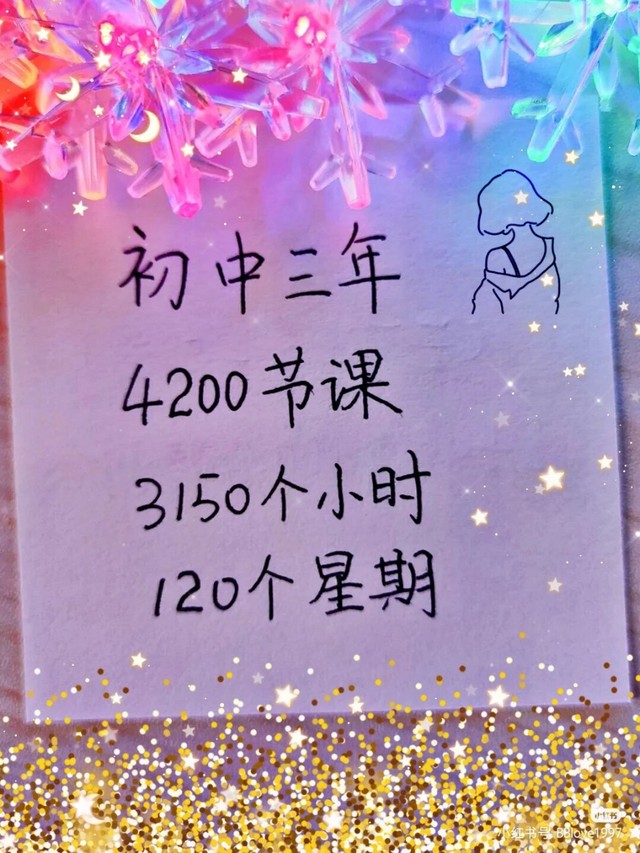 初中三年
4200节课
3150个小时
120个星期
小红书
小红书号:BBlove1997